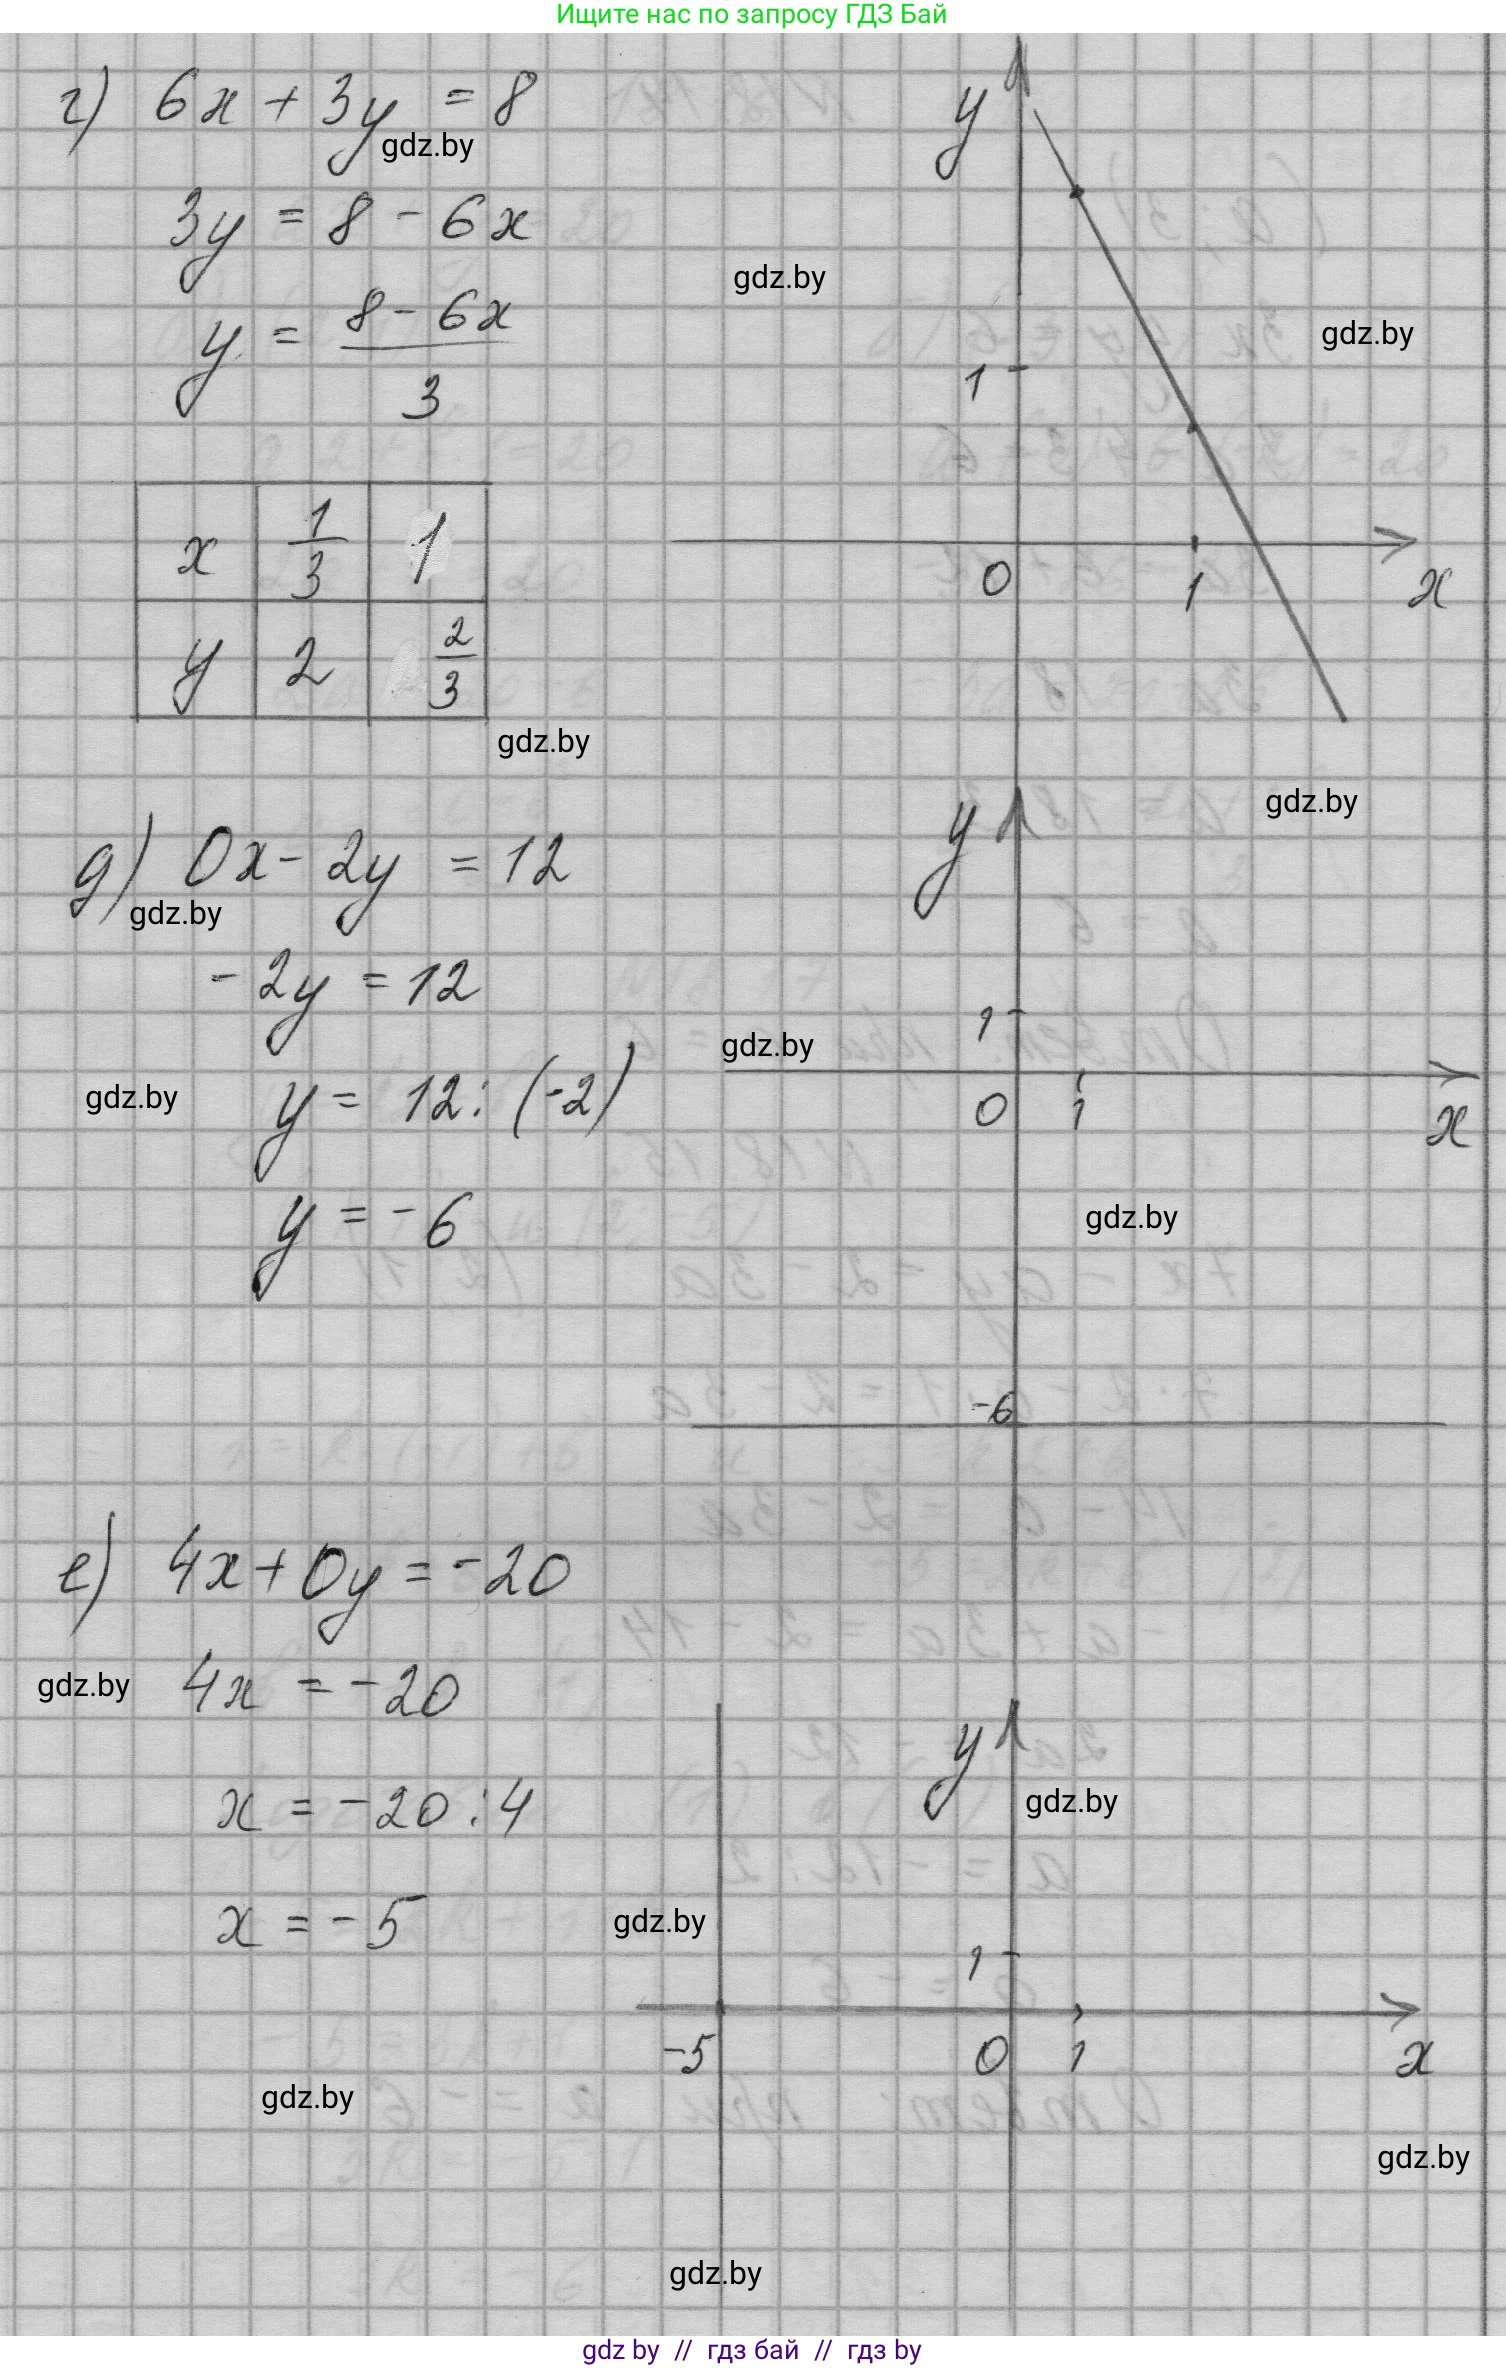 Ищите нас по запросу ГДЗ Бай
г) 6x + 3y = 8
gdz.by
3y = 8 - 6x
gdz.by
y = 8 - 6x / 3
gdz.by
x 1/3 1
y 2 2/3
gdz.by
y
1
0 1 x
gdz.by
д) 0x - 2y = 12
gdz.by
-2y = 12
gdz.by
y = 12 : (-2)
gdz.by
y = -6
gdz.by
y
1
0 1 x
-6
е) 4x + 0y = -20
gdz.by
4x = -20
x = -20 : 4
gdz.by
x = -5
gdz.by
y
1
-5 0 1 x
gdz.by
gdz.by
gdz.by
gdz by // гдз бай // гдз by